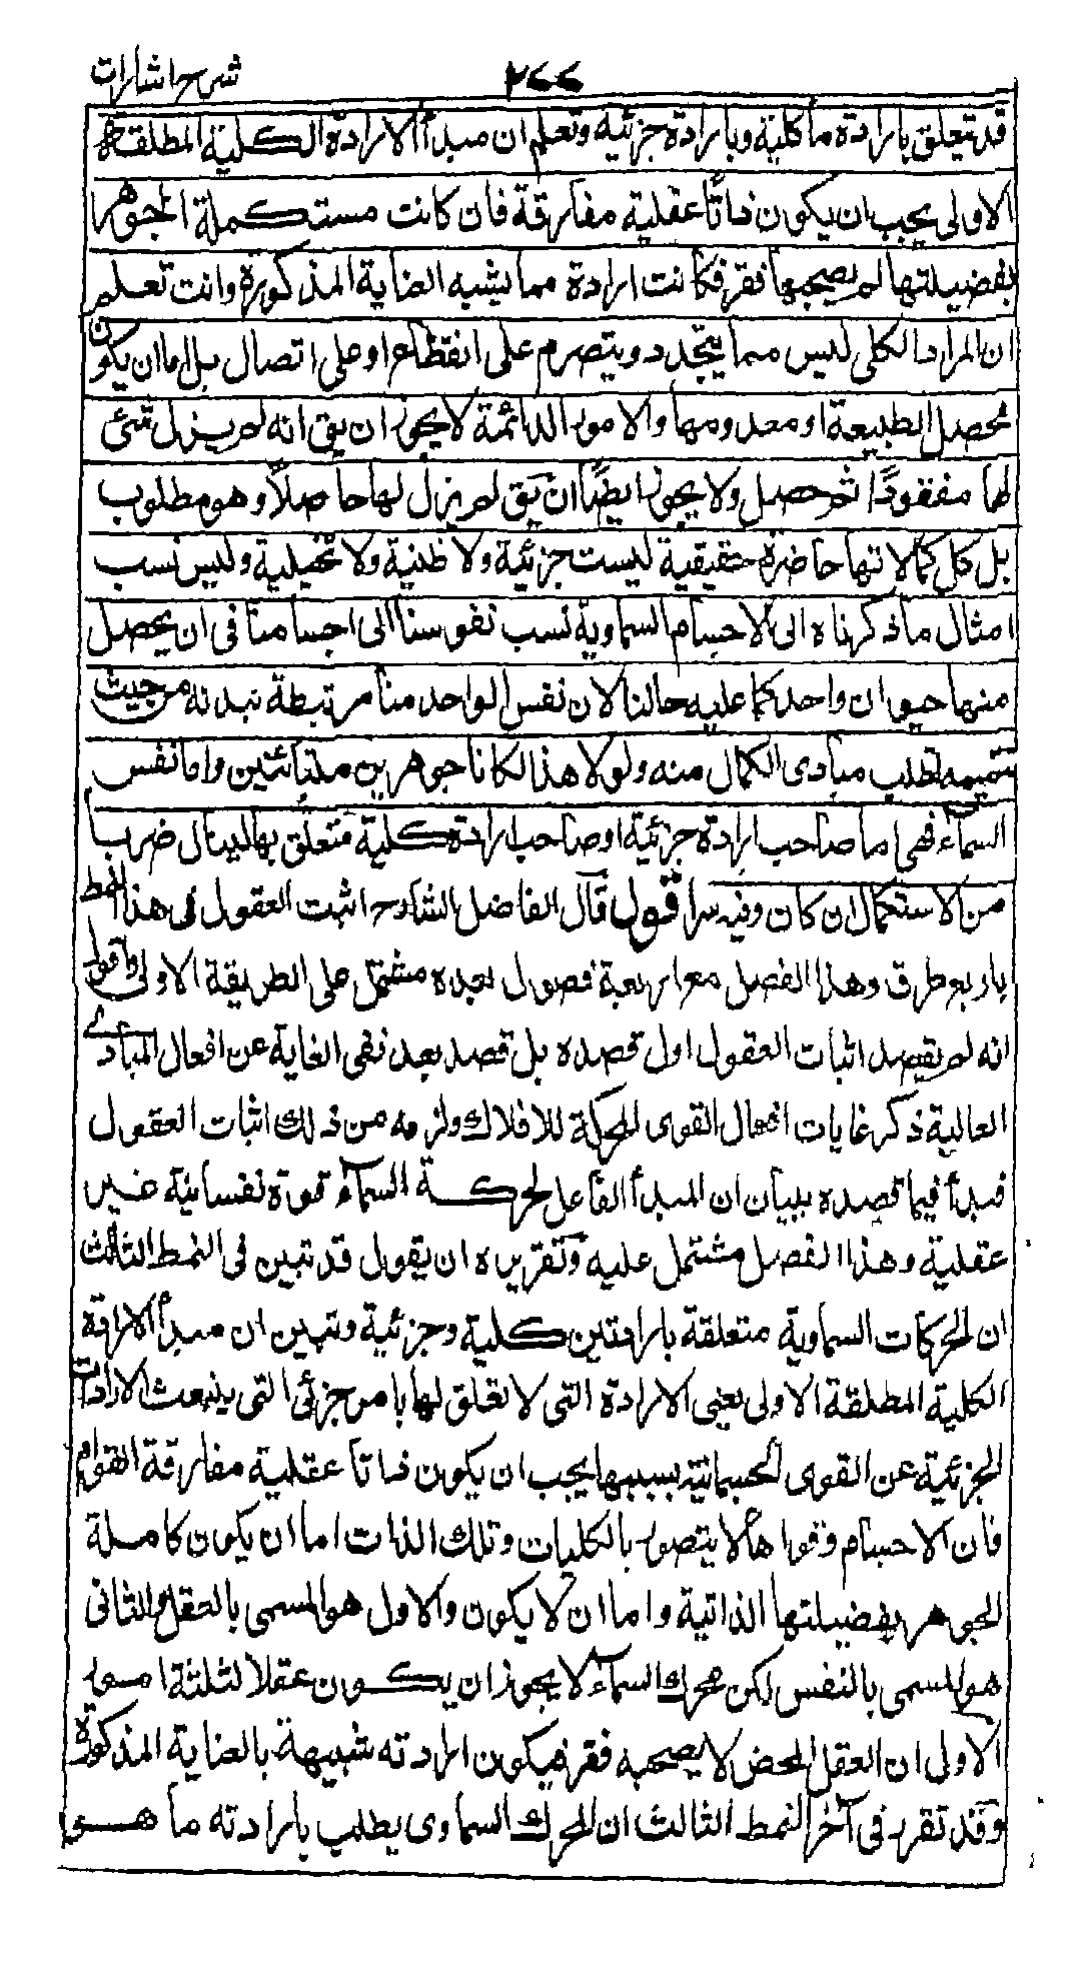 شرح اشارات
٢٧٧
قد تتعلق بارادة ما كلية وبارادة جزئية وتعلم ان مبدأ الارادة الكلية المطلقة
الاولى يجب ان يكون ذاتًا عقلية مفارقة فان كانت مستكملة الجوهر
بفضيلتها لم يصحبها فقر فكانت ارادة مما يشبه العناية المذكورة وانت تعلم
ان المراد الكلى ليس مما يتجدد ويتصرم على انقطاع او على اتصال بل اما ان يكون
محصل الطبيعة او معدومها والامور الدائمة لا يجوز ان يق انه لم يزل شئ
لها مفقودًا ثم حصل ولا يجوز ايضًا ان يق لم يزل لها حاصلًا وهو مطلوب
بل كل كمالاتها حاضرة حقيقية ليست جزئية ولا ظنية ولا تخيلية وليس نسب
امثال ما ذكرناه الى الاجسام السماوية نسب نفوسنا الى اجسامنا فى ان يحصل
منها حيوان واحد كما عليه حالنا لان نفس الواحد منا مرتبطة ببدنه من حيث
تتميمه تطلب مبادى الكمال منه ولولا هذا لكانا جوهرين متباينين واما نفس
السماء فهى اما صاحب ارادة جزئية او صاحب ارادة كلية متعلق بها لينال ضرب
من الاستكمال ان كان وفيه سر اقول قال الفاضل الشارح اثبت العقول فى هذا النمط
باربع طرق وهذا الفصل مع اربعة فصول بعده مشتمل على الطريقة الاولى واقول
انه لم يقصد اثبات العقول اول قصده بل قصد بعد نفى الغاية عن افعال المبادى
العالية ذكر غايات افعال القوى المحركة للافلاك ولزمه من ذلك اثبات العقول
فبدأ فيما قصده ببيان ان المبدأ الفاعل لحركة السماء قوة نفسانية غير
عقلية وهذا الفصل مشتمل عليه وتقريره ان يقول قد تبين فى النمط الثالث
ان الحركات السماوية متعلقة بارادتين كلية وجزئية وتبين ان مبدأ الارادة
الكلية المطلقة الاولى يعنى الارادة التى لا تعلق لها بامر جزئى التى ينبعث الارادات
الجزئية عن القوى الجسمانية بسببها يجب ان يكون ذاتًا عقلية مفارقة القوام
فان الاجسام وقواها لا يتصور بالكليات وتلك الذات اما ان يكون كاملة
الجوهر بفضيلتها الذاتية واما ان لا يكون والاول هو المسمى بالعقل والثانى
هو المسمى بالنفس لكن محرك السماء لا يجوز ان يكون عقلا لثلثة امور
الاولى ان العقل المحض لا يصحبه فقر فيكون ارادته شبيهة بالعناية المذكورة
وقد تقرر فى آخر النمط الثالث ان المحرك السماوى يطلب بارادته ما هو